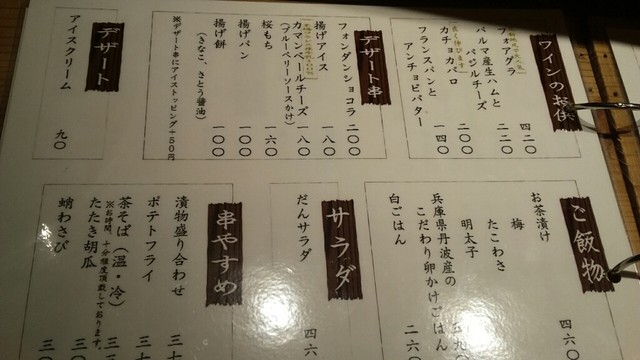 ワインのお供
フォアグラ 四二〇
パルマ産生ハムと
バジルチーズ 二〇〇
カチョカバロ 二〇〇
フランスパンと
アンチョビバター 一四〇
デザート串
フォンダンショコラ 二〇〇
揚げアイス 一八〇
カマンベールチーズ
(ブルーベリーソースかけ) 一八〇
桜もち 一六〇
揚げパン 一〇〇
揚げ餅 一〇〇
(きなこ、さとう醤油)
※デザート串にアイストッピング+50円
デザート
アイスクリーム 九〇
ご飯物
お茶漬け
梅
たこわさ
明太子
兵庫県丹波産の
こだわり卵かけごはん
白ごはん 二六〇
サラダ
だんサラダ 四六
串やすめ
漬物盛り合わせ 三七
ポテトフライ 三七
茶そば(温・冷)
※お時間、十分程度頂戴しております。
たたき胡瓜 三
蛸わさび 三〇